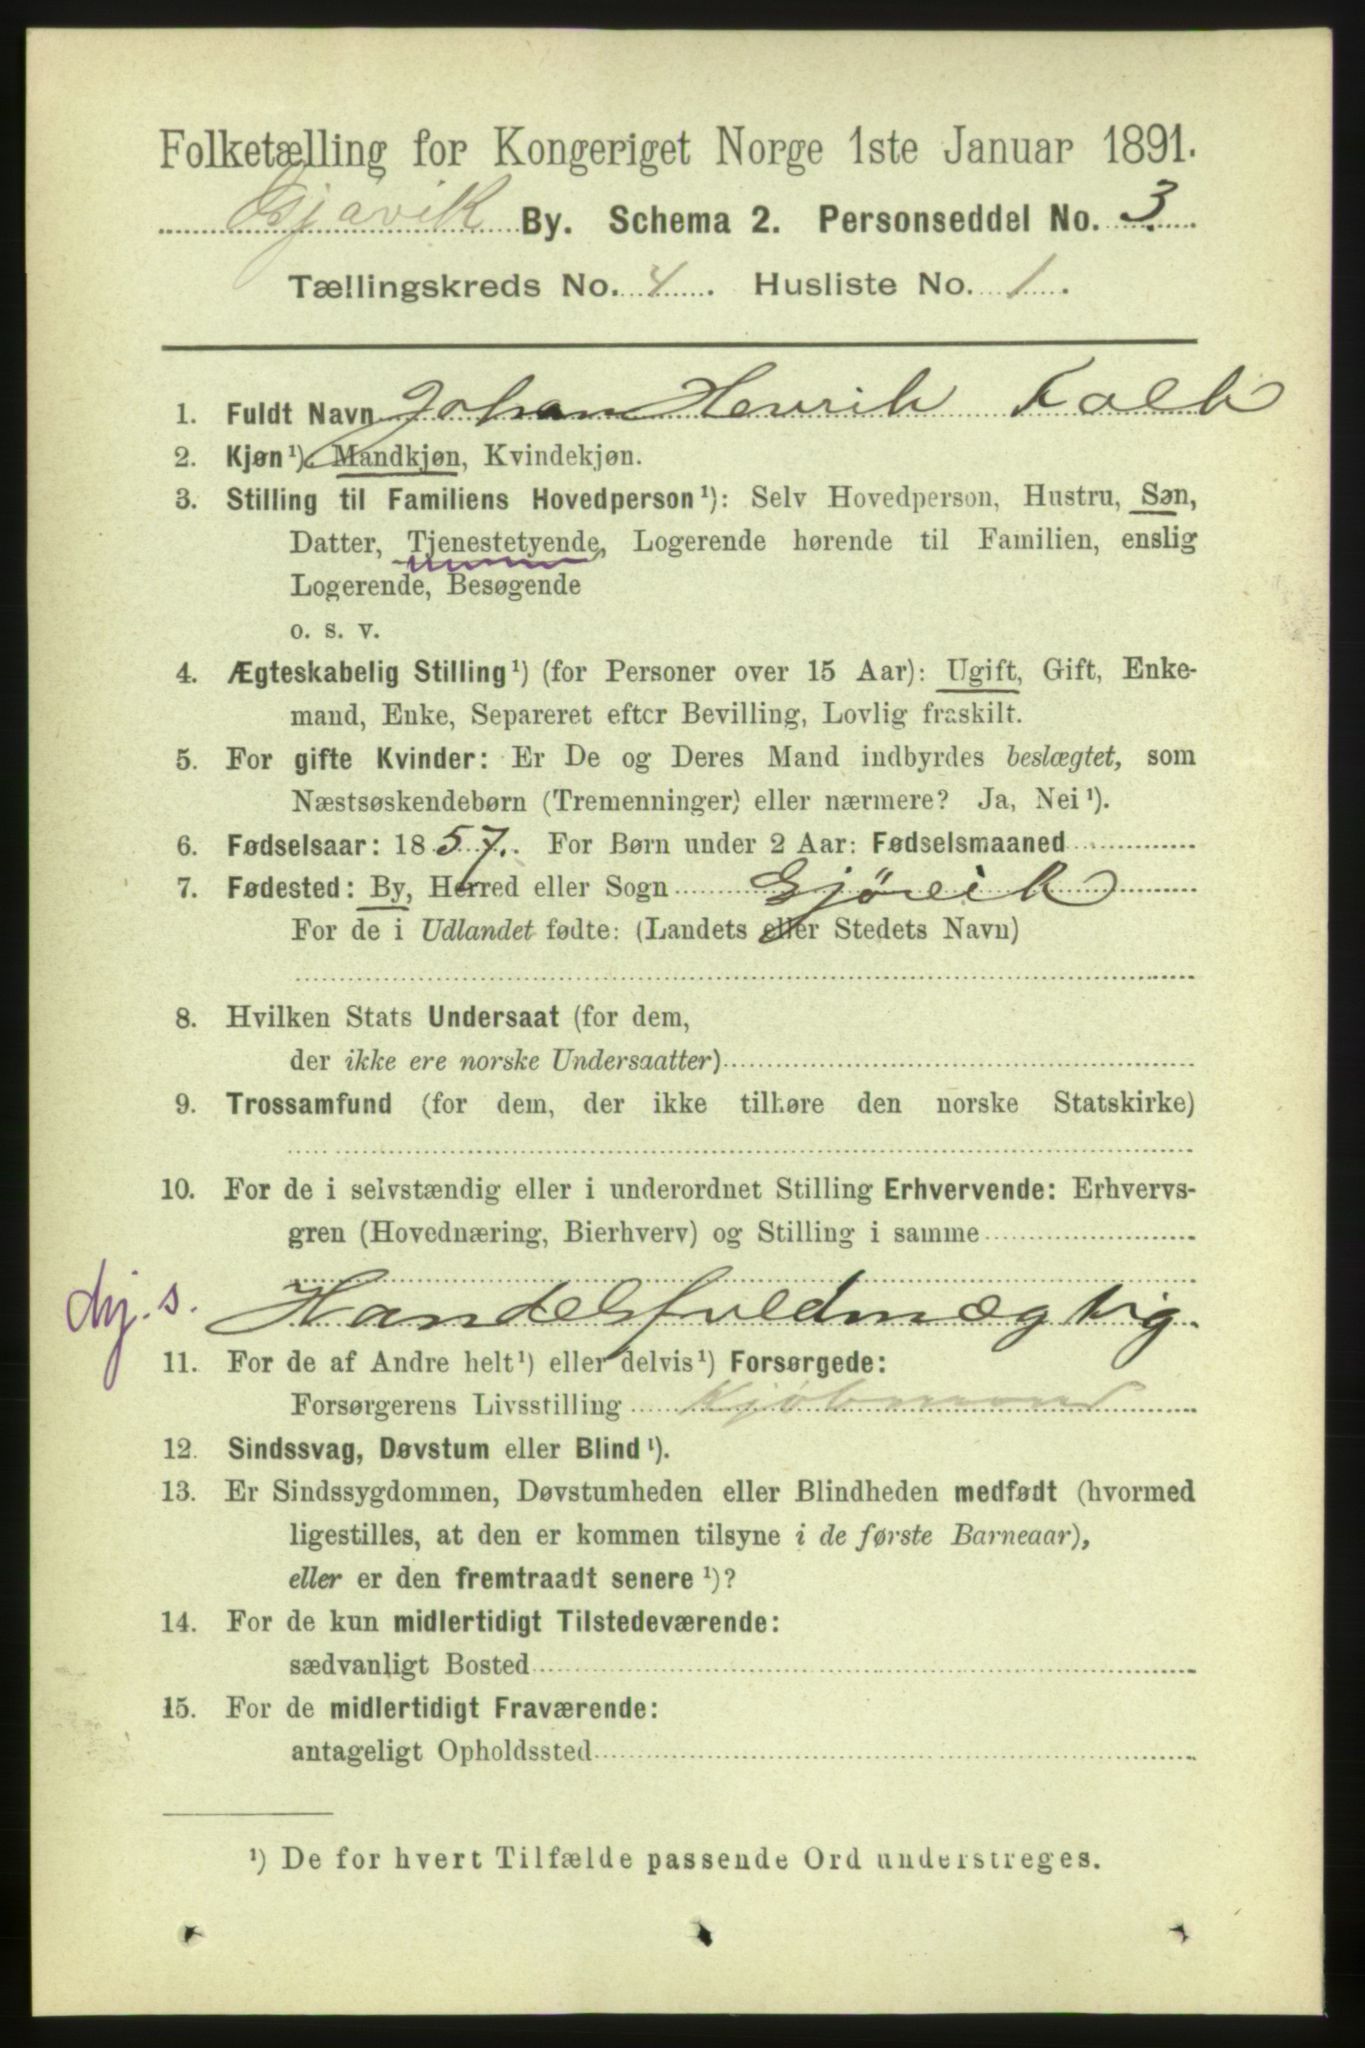 Folketælling for Kongeriget Norge 1ste Januar 1891.
Gjøvik By. Schema 2. Personseddel No. 3.
Tællingskreds No. 4. Husliste No. 1.
1. Fuldt Navn Johan Henrik
2. Kjøn¹). Mandkjøn, Kvindekjøn.
3. Stilling til Familiens Hovedperson¹): Selv Hovedperson, Hustru, Søn,
Datter, Tjenestetyende, Logerende hørende til Familien, enslig
Logerende, Besøgende
o. s. v.
4. Ægteskabelig Stilling¹) (for Personer over 15 Aar): Ugift, Gift, Enke-
mand, Enke, Separeret efter Bevilling, Lovlig fraskilt.
5. For gifte Kvinder: Er De og Deres Mand indbyrdes beslægtet, som
Næstsøskendebørn (Tremenninger) eller nærmere? Ja, Nei¹).
6. Fødselsaar: 1857. For Børn under 2 Aar: Fødselsmaaned
7. Fødested: By, Herred eller Sogn Gjövik
For de i Udlandet fødte: (Landets eller Stedets Navn)
8. Hvilken Stats Undersaat (for dem,
der ikke ere norske Undersaatter)
9. Trossamfund (for dem, der ikke tilhøre den norske Statskirke)
10. For de i selvstændig eller i underordnet Stilling Erhvervende: Erhvervs-
gren (Hovednæring, Bierhverv) og Stilling i samme
Handelsfuldmægtig.
11. For de af Andre helt¹) eller delvis¹) Forsørgede:
Forsørgerens Livsstilling Kjöbmand
12. Sindssvag, Døvstum eller Blind¹).
13. Er Sindssygdommen, Døvstumheden eller Blindheden medfødt (hvormed
ligestilles, at den er kommen tilsyne i de første Barneaar),
eller er den fremtraadt senere¹)?
14. For de kun midlertidigt Tilstedeværende:
sædvanligt Bosted
15. For de midlertidigt Fraværende:
antageligt Opholdssted
¹) De for hvert Tilfælde passende Ord understreges.